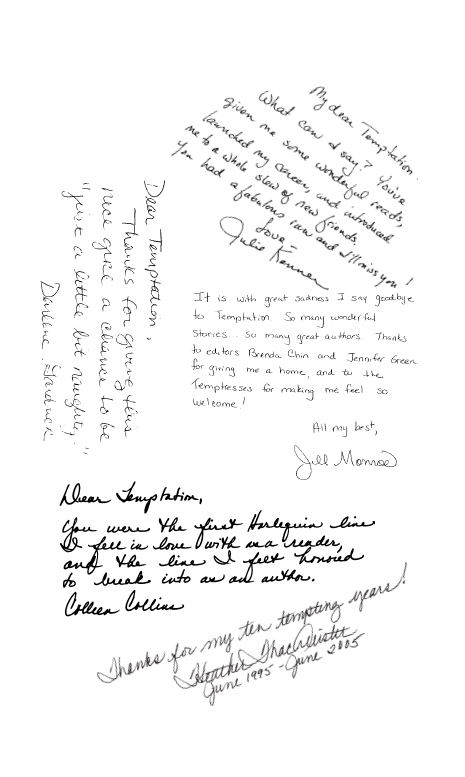 My dear Temptation.
What can I say? You've
given me some wonderful reads,
launched my career, and introduced
me to a whole slew of new friends.
You had a fabulous run and I'll miss you!
Love-
Julie Kenner
Dear Temptation,
Thanks for giving this
nice girl a chance to be
"just a little bit naughty."
Darlene Gardner
It is with great sadness I say goodbye
to Temptation. So many wonderful
Stories... So many great authors. Thanks
to editors Brenda Chin and Jennifer Green
for giving me a home, and to the
Temptresses for making me feel so
welcome!
All my best,
Jill Monroe
Dear Temptation,
You were the first Harlequin line
I fell in love with as a reader,
and the line I felt honored
to break into as an author.
Colleen Collins
Thanks for my ten tempting years!
Heather MacAllister
June 1995 - June 2005